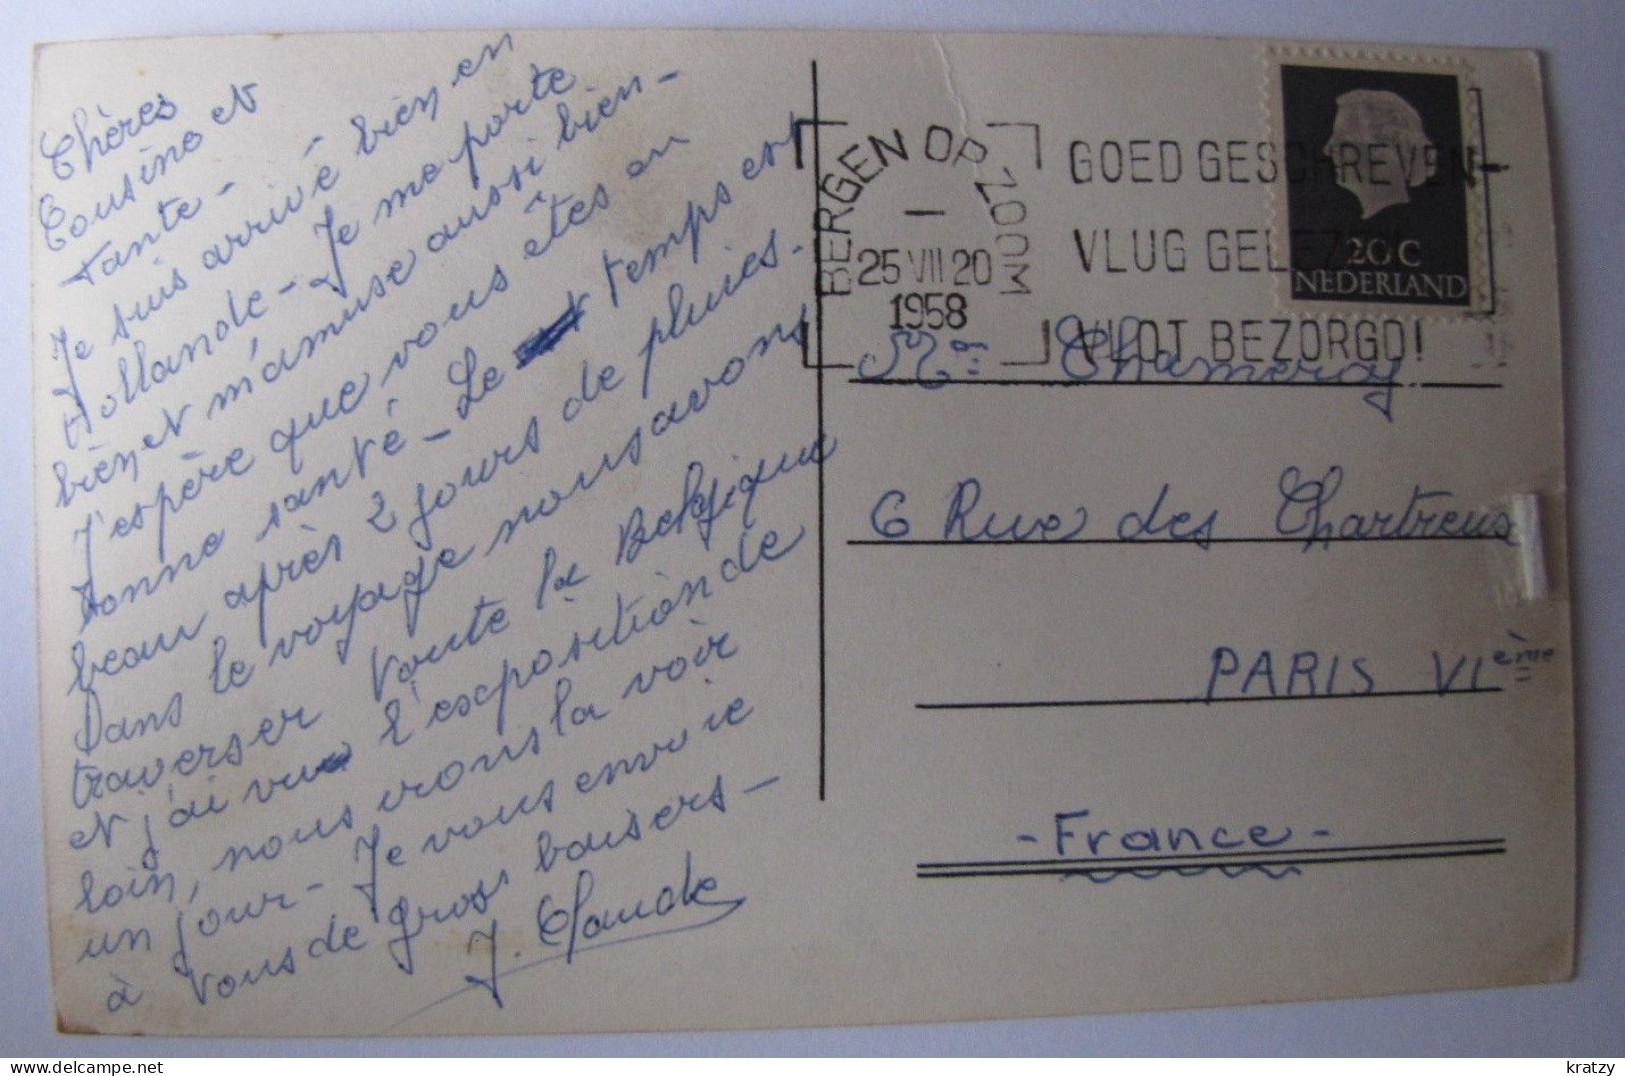 Chères
Cousine et
Tante -
Je suis arrivé bien en
Hollande - Je me porte
bien et m'amuse aussi bien -
J'espère que vous êtes en
bonne santé - Le temps est
beau après 2 jours de pluies.
Dans le voyage nous avons
traverser toute la Belgique
et j'ai vu l'exposition de
loin, nous irons la voir
un jour - Je vous envoie
à vous de gros baisers -
J. Claude
BERGEN OP ZOOM
25 VII 20
1958
GOED GESCHREVEN -
VLUG GELEZEN
VLOT BEZORGD!
20 C
NEDERLAND
Chameroy
6 Rue des Chartreux
PARIS VIème
- France -
kratzy